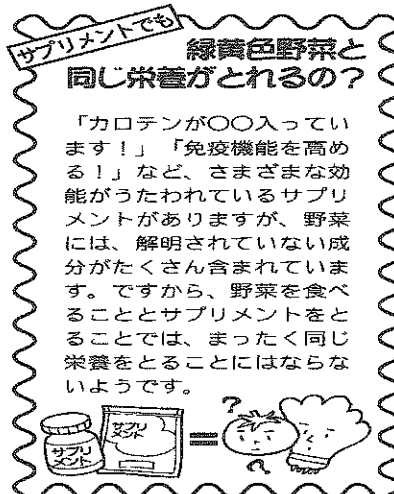 サプリメントでも
緑黄色野菜と
同じ栄養がとれるの？
「カロテンが〇〇入ってい
ます！」「免疫機能を高め
る！」など、さまざまな効
能がうたわれているサプリ
メントがありますが、野菜
には、解明されていない成
分がたくさん含まれていま
す。ですから、野菜を食べ
ることとサプリメントをと
ることでは、まったく同じ
栄養をとることにはならな
いようです。
サプリ
メント
サプリ
メント
=
?
?